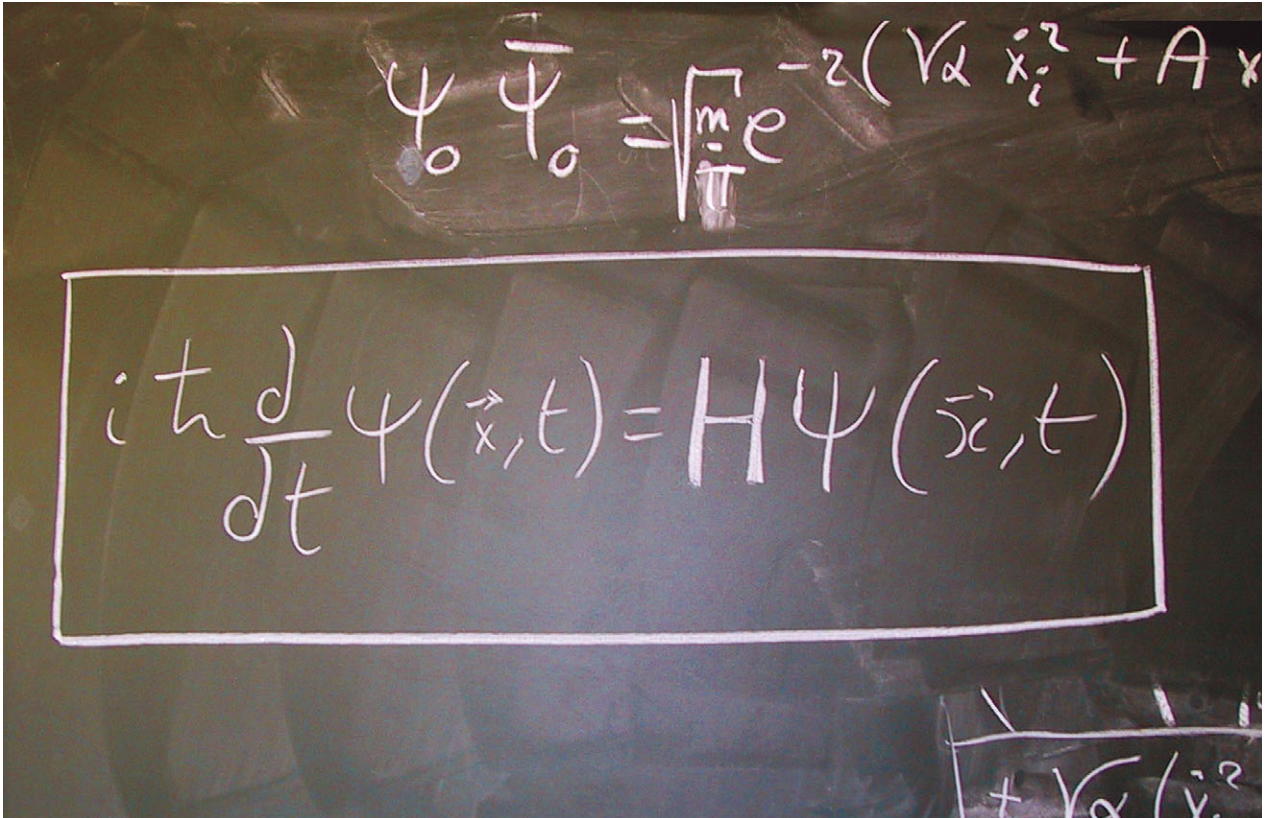 ψ₀ ψ̄₀ = √(m/π) e^{-2(√α ẋᵢ² + A x
iħ d/dt ψ(x⃗, t) = H ψ(x⃗, t)
+ √α (ẋᵢ²